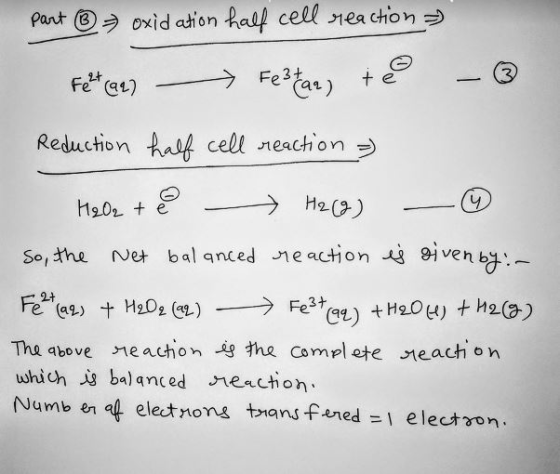 Part Ⓑ ⇒ oxidation half cell reaction ⇒
Fe²⁺(aq) ⟶ Fe³⁺(aq) + e⊖ — ③
Reduction half cell reaction ⇒
H2O2 + e⊖ ⟶ H2(g) — ④
So, the Net balanced reaction is given by:-
Fe²⁺(aq) + H2O2(aq) ⟶ Fe³⁺(aq) + H2O(l) + H2(g)
The above reaction is the complete reaction
which is balanced reaction.
Number of electrons transfered = 1 electron.